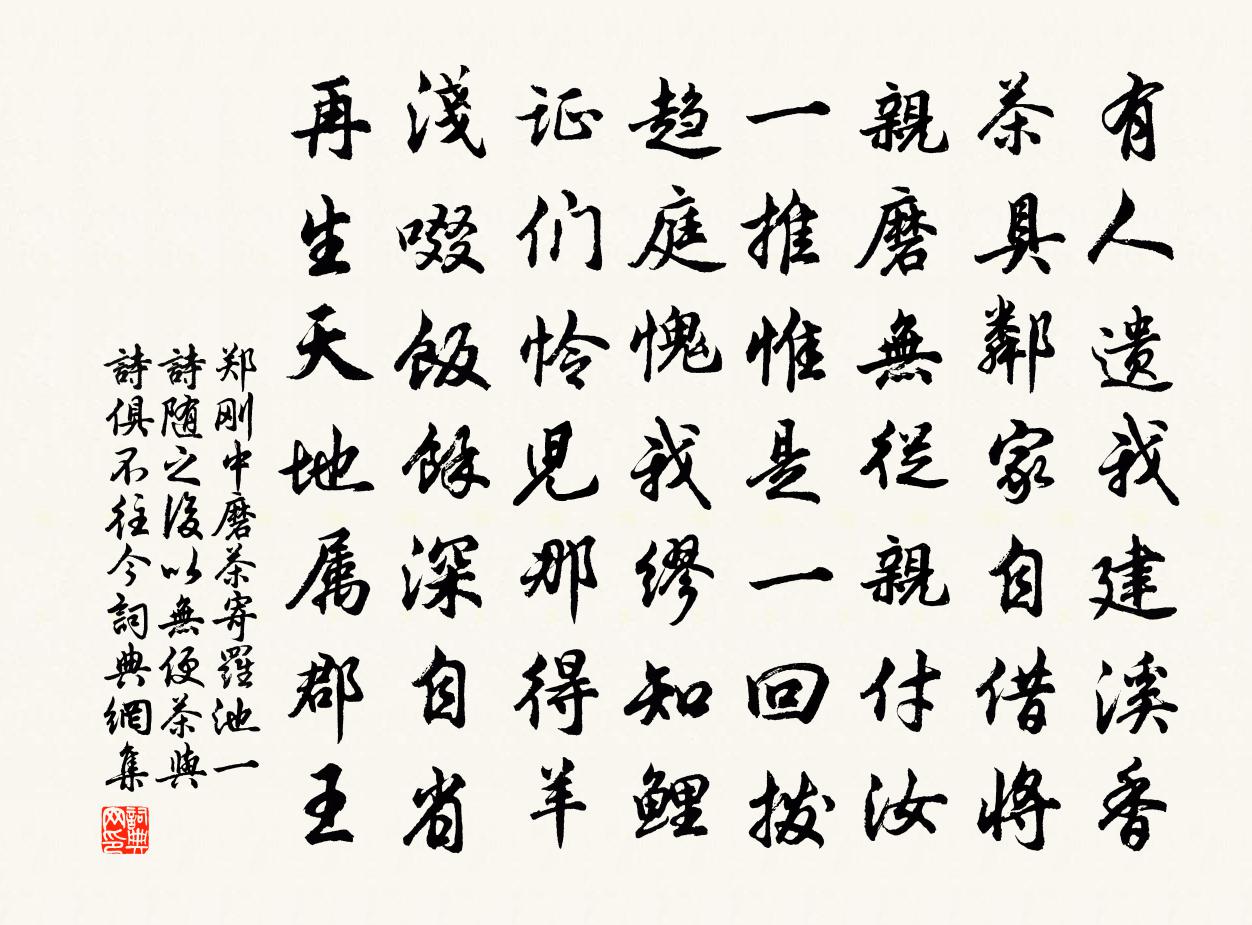 有人遗我建溪香
茶具鄰家自借將
親磨無從親付汝
一推惟是一回拨
趋庭愧我繆知鲤
证们怜児那得羊
淺啜飯餘深自省
再生天地属郡王
郑刚中磨茶寄羅池一
詩随之後以無便茶與
詩俱不往今詞典網集
詞典
网印